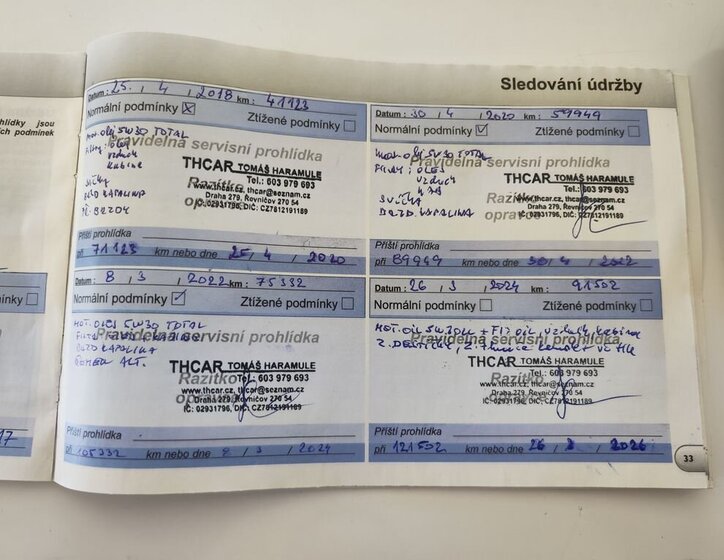 hlídky jsou
ch podmínek
ínky
17
Sledování údržby
Datum : 25. / 4 / 2018 km : 41123
Normální podmínky X Ztížené podmínky
Pravidelná servisní prohlídka
Mot. olej 5W30 TOTAL
Filtry: olej
vzduch
kabina
svíčky
BRZD KAPALINA
Razítko
opravny
THCAR TOMÁŠ HARAMULE
Tel.: 603 979 693
www.thcar.cz, thcar@seznam.cz
Draha 279, Řevničov 270 54
IČ: 02931796, DIČ: CZ7812191189
Příští prohlídka
při 71123 km nebo dne 25 / 4 / 2020
Datum : 30 / 4 / 2020 km : 59949
Normální podmínky ✓ Ztížené podmínky
Pravidelná servisní prohlídka
Mot. olej 5W30 TOTAL
Filtry: olej
vzduch
KAB
SVÍČKA
BRZD. KAPALINA
Razítko
opravny
THCAR TOMÁŠ HARAMULE
Tel.: 603 979 693
www.thcar.cz, thcar@seznam.cz
Draha 279, Řevničov 270 54
IČ: 02931796, DIČ: CZ7812191189
Příští prohlídka
při 89949 km nebo dne 30 / 4 / 2022
Datum : 8 / 3 / 2022 km : 75332
Normální podmínky ✓ Ztížené podmínky
Pravidelná servisní prohlídka
MOT. OLEJ 5W30 TOTAL
BRZD KAPALINA
ŘEMEN ALT.
Razítko
opravny
THCAR TOMÁŠ HARAMULE
Tel.: 603 979 693
www.thcar.cz, thcar@seznam.cz
Draha 279, Řevničov 270 54
IČ: 02931796, DIČ: CZ7812191189
Příští prohlídka
při 105332 km nebo dne 8 / 3 / 2024
Datum : 26 / 3 / 2024 km : 91502
Normální podmínky Ztížené podmínky
Pravidelná servisní prohlídka
MOT. OIL 5W30 + Fil oil, vzduch, kabina
Razítko
opravny
THCAR TOMÁŠ HARAMULE
Tel.: 603 979 693
www.thcar.cz, thcar@seznam.cz
Draha 279, Řevničov 270 54
IČ: 02931796, DIČ: CZ7812191189
Příští prohlídka
při 121502 km nebo dne 26 / 3 / 2026
33